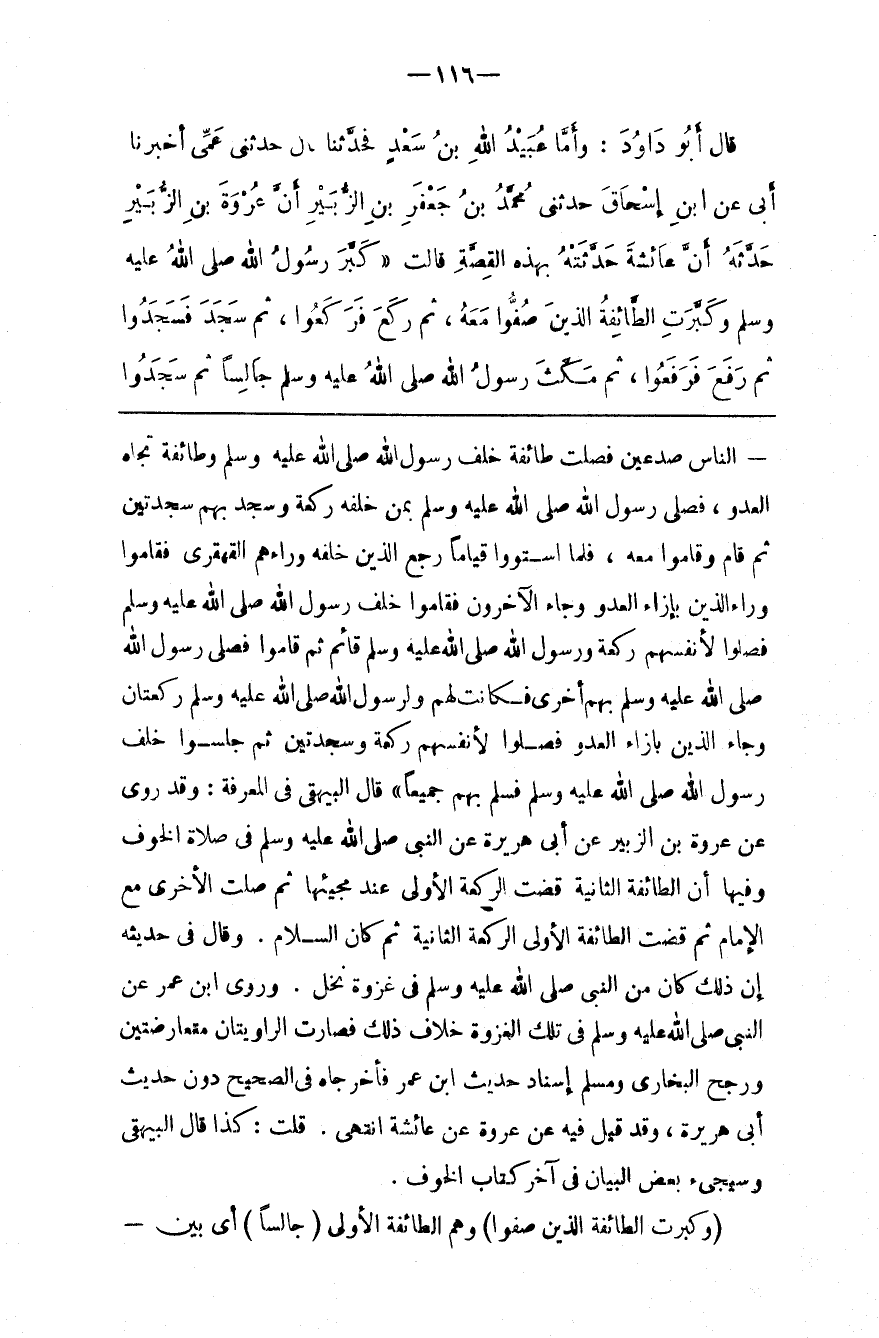 —١١٦—
قال أَبُو دَاوُدَ : وأَمَّا عُبَيْدُ اللهِ بنُ سَعْدٍ فحدَّثنا ال حدثنى عَمِّى أخبرنا
أَبى عن ابنِ إسْحَاقَ حدثنى مُحمَّدُ بنُ جَعْفَرِ بنِ الزُّبَيْرِ أَنَّ عُرْوَةَ بنِ الزُّبَيْرِ
حَدَّثَهُ أَنَّ عَائشةَ حَدَّثَتْهُ بهذه القِصَّةِ قالت « كَبَّرَ رسُولُ الله صلى اللهُ عليه
وسلم وكَبَّرَتِ الطَّائِفةُ الذينَ صُفُّوا مَعَهُ ، ثم ركَعَ فَرَكَعُوا ، ثم سَجَدَ فَسَجَدُوا
ثم رَفَعَ فَرَفَعُوا ، ثم مَكَثَ رسولُ الله صلى اللهُ عليه وسلم جَالِساً ثم سَجَدُوا
— الناس صدعين فصلت طائفة خلف رسول الله صلى الله عليه وسلم وطائفة تجاه
العدو ، فصلى رسول الله صلى الله عليه وسلم بمن خلفه ركعة وسجد بهم سجدتين
ثم قام وقاموا معه ، فلما استووا قياماً رجع الذين خلفه وراءهم القهقرى فقاموا
وراء الذين بإزاء العدو وجاء الآخرون فقاموا خلف رسول الله صلى الله عليه وسلم
فصلوا لأنفسهم ركعة ورسول الله صلى الله عليه وسلم قائم ثم قاموا فصلى رسول الله
صلى الله عليه وسلم بهم أخرى فكانت لهم ولرسول الله صلى الله عليه وسلم ركعتان
وجاء الذين بازاء العدو فصلوا لأنفسهم ركعة وسجدتين ثم جلسوا خلف
رسول الله صلى الله عليه وسلم فسلم بهم جميعاً» قال البيهقى فى المعرفة : وقد روى
عن عروة بن الزبير عن أبى هريرة عن النبى صلى الله عليه وسلم فى صلاة الخوف
وفيها أن الطائفة الثانية قضت الركعة الأولى عند مجيئها ثم صلت الأخرى مع
الإمام ثم قضت الطائفة الأولى الركعة الثانية ثم كان السلام . وقال فى حديثه
إن ذلك كان من النبى صلى الله عليه وسلم فى غزوة نخل . وروى ابن عمر عن
النبى صلى الله عليه وسلم فى تلك الغزوة خلاف ذلك فصارت الراويتان متعارضتين
ورجح البخارى ومسلم إسناد حديث ابن عمر فأخرجاه فى الصحيح دون حديث
أبى هريرة ، وقد قيل فيه عن عروة عن عائشة انتهى . قلت : كذا قال البيهقى
وسيجىء بعض البيان فى آخر كتاب الخوف .
(وكبرت الطائفة الذين صفوا) وهم الطائفة الأولى ( جالساً ) أى بين —